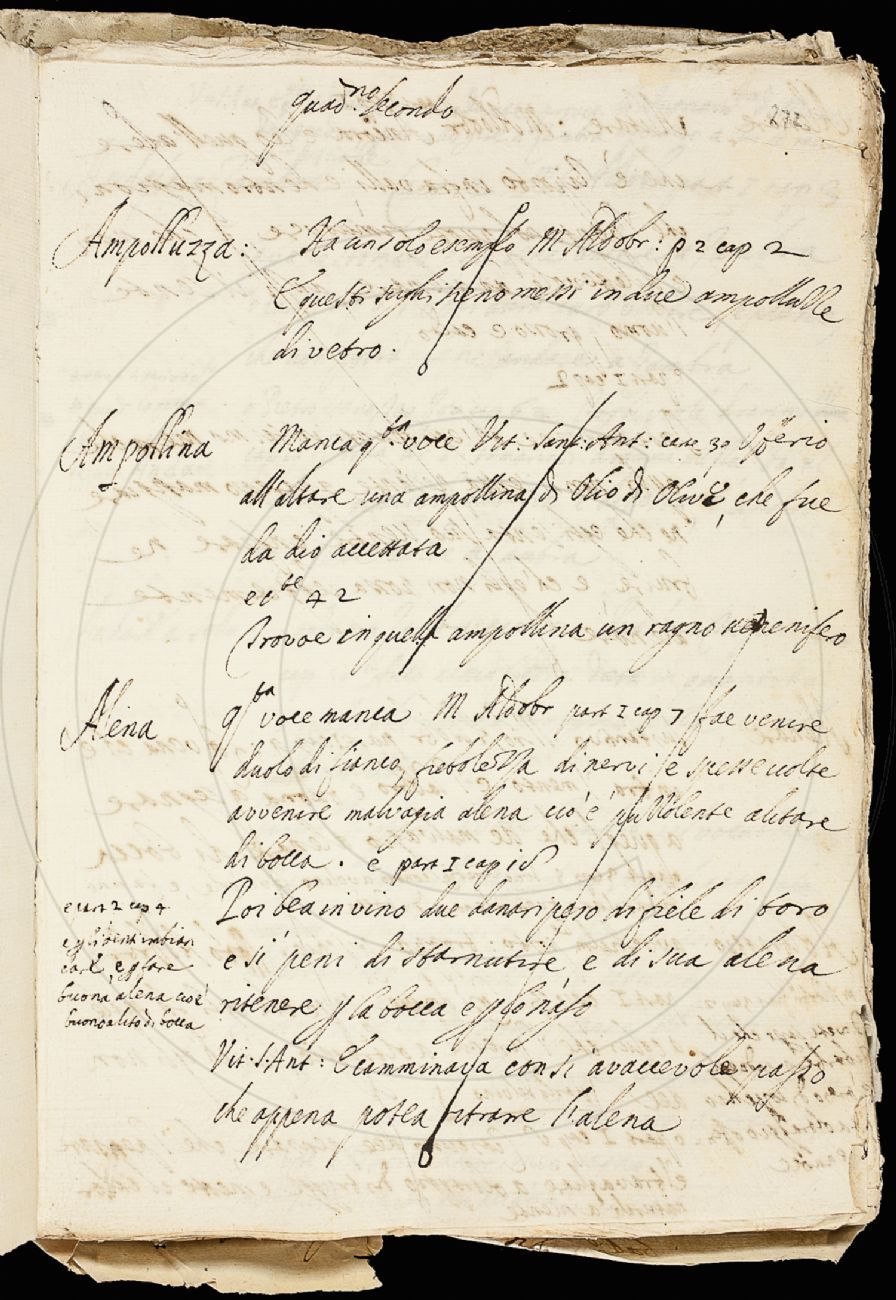 quad.no secondo
272
Ampolluzza: Ha un solo esemplo M Aldobr: p 2 cap 2
E questi sughi sieno messi in due ampolluzze
di vetro.
Ampollina Manca q.ta voce Vit: Sant: Ant: car 39 Offerio
all'altare una ampollina di Olio di Olive, che fue
da dio accettata
e c.te 42
Trovoe in quella ampollina un ragno venenifero
Alena q.ta voce manca M Aldobr part 1 cap 7 fae venire
duolo di fianco, fiebolezza di nervi e spesse volte
avvenire malvagia alena cio è pullolente alitare
di bocca. e part 1 cap 18
Poi bea in vino due danari peso di fiele di toro
e si peni di starnutire e di sua alena
ritenere p la bocca e p lo naso
e part 2 cap 4
e gli denti imbian
care, e p fare
buona alena cio è
buono alito di bocca
Vit: S: Ant: E camminava con si avaccevole passo
che appena potea ritrarre l'alena